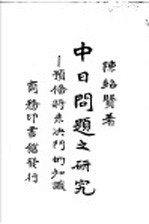 陳紹賢著
中日問題之研究
—預備將來決鬥的知識
商務印書館發行